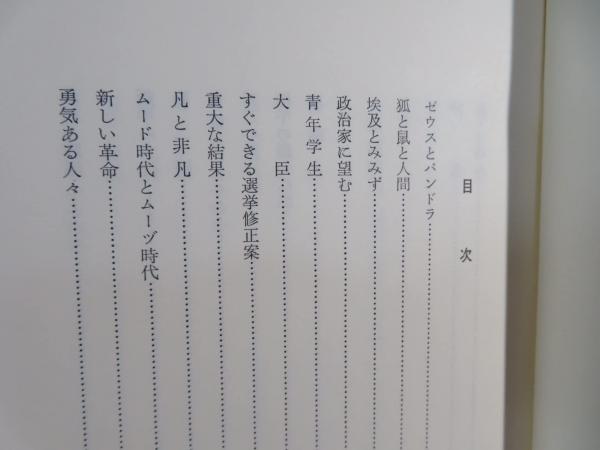 目次
ゼウスとパンドラ
狐と鼠と人間
埃及とみみず
政治家に望む
青年学生
大臣
すぐできる選挙修正案
重大な結果
凡と非凡
ムード時代とムーヅ時代
新しい革命
勇気ある人々